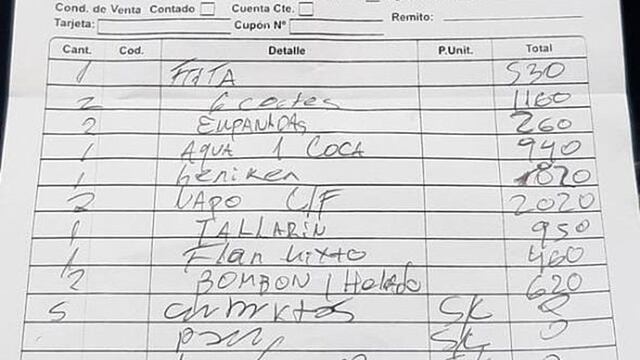 Cond. de Venta Contado Cuenta Cte. Remito:
Tarjeta: Cupón Nº
Cant. Cod. Detalle P.Unit. Total
1 FRITA 530
2 6 cortes 1160
2 EMPANADAS 260
1 AGUA 1 COCA 940
1 heniken 820
2 VAPO C/F 2020
1 TALLARIN 950
1 Flan Mixto 460
2 BOMBON 1 Helado 620
5 SK
SK